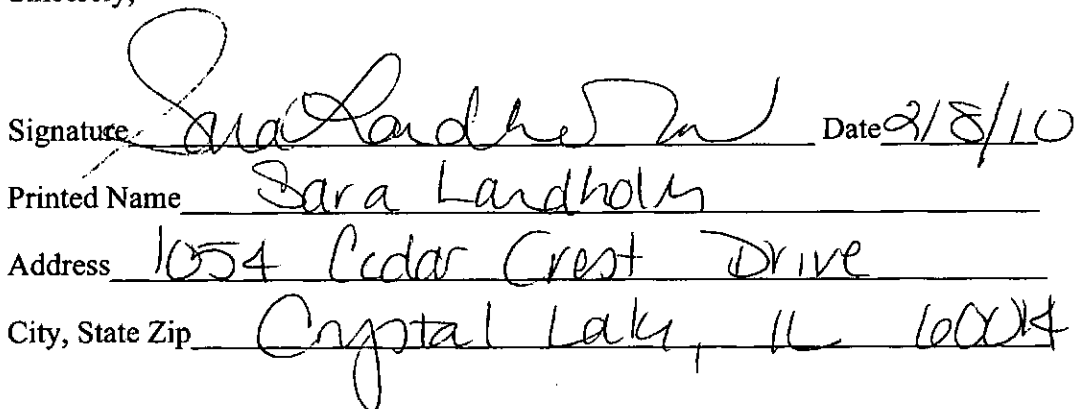 Sincerely,
Signature Sara Landholm Date 2/8/10
Printed Name Sara Landholm
Address 1054 Cedar Crest Drive
City, State Zip Crystal Lake, IL 60014